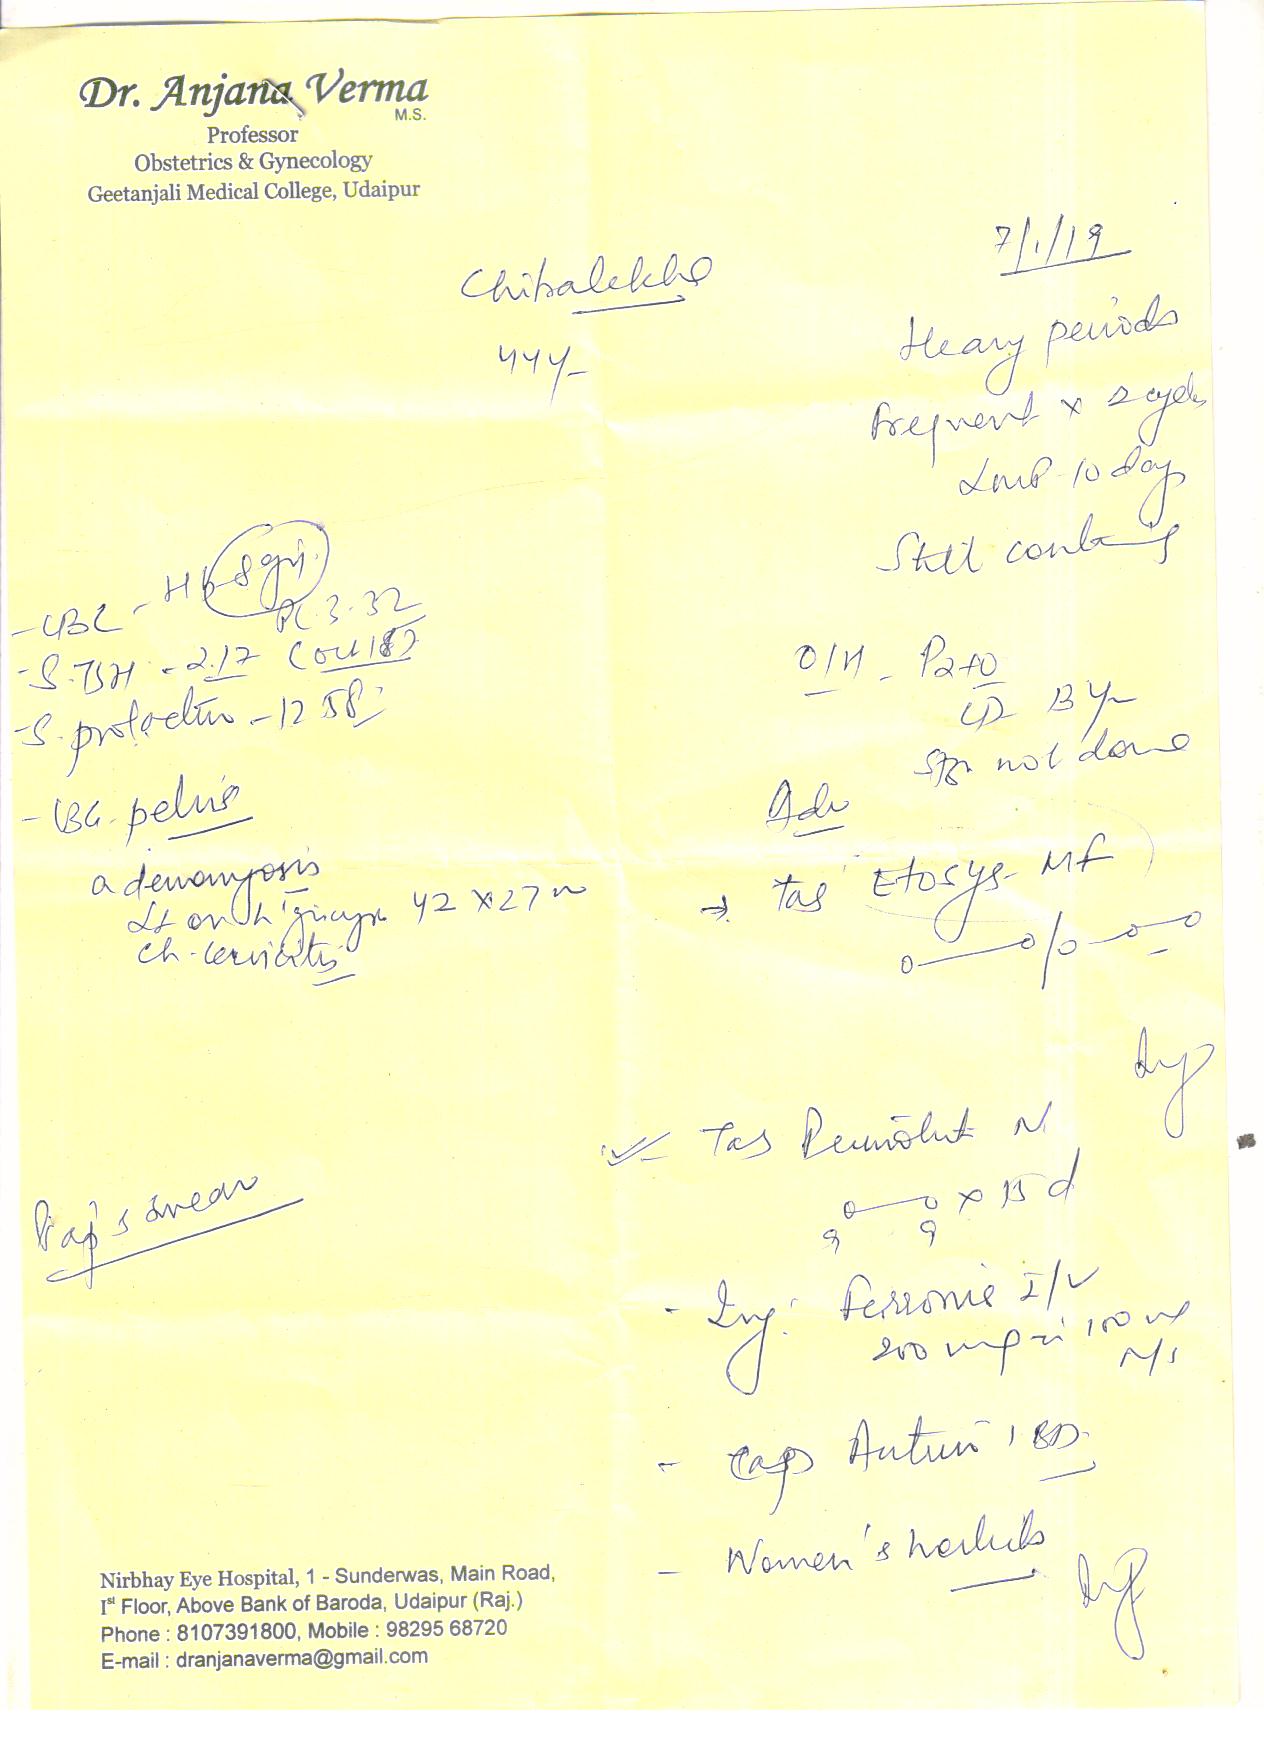 Dr. Anjana Verma
M.S.
Professor
Obstetrics & Gynecology
Geetanjali Medical College, Udaipur
7/1/19
44y/-
Heavy periods
frequent x 2 cycles
LMP-10 days
Still
- CBC - Hb 8gm.
- S.TSH - 2.17
- S. prolactin - 12.58
O/H - P2+0
LD 13 Yr
not done
Adv
pelvis
adenomyosis
42 x 27
ch. cervicitis
→ Tab Etosys-MF
- Tab N
x 15 d
9 9
Pap's smear
- Inj. I/V
200 mg in 100 ml
N/S
- Cap Autrin 1 BD
- Women's
Nirbhay Eye Hospital, 1 - Sunderwas, Main Road,
Ist Floor, Above Bank of Baroda, Udaipur (Raj.)
Phone : 8107391800, Mobile : 98295 68720
E-mail : dranjanaverma@gmail.com